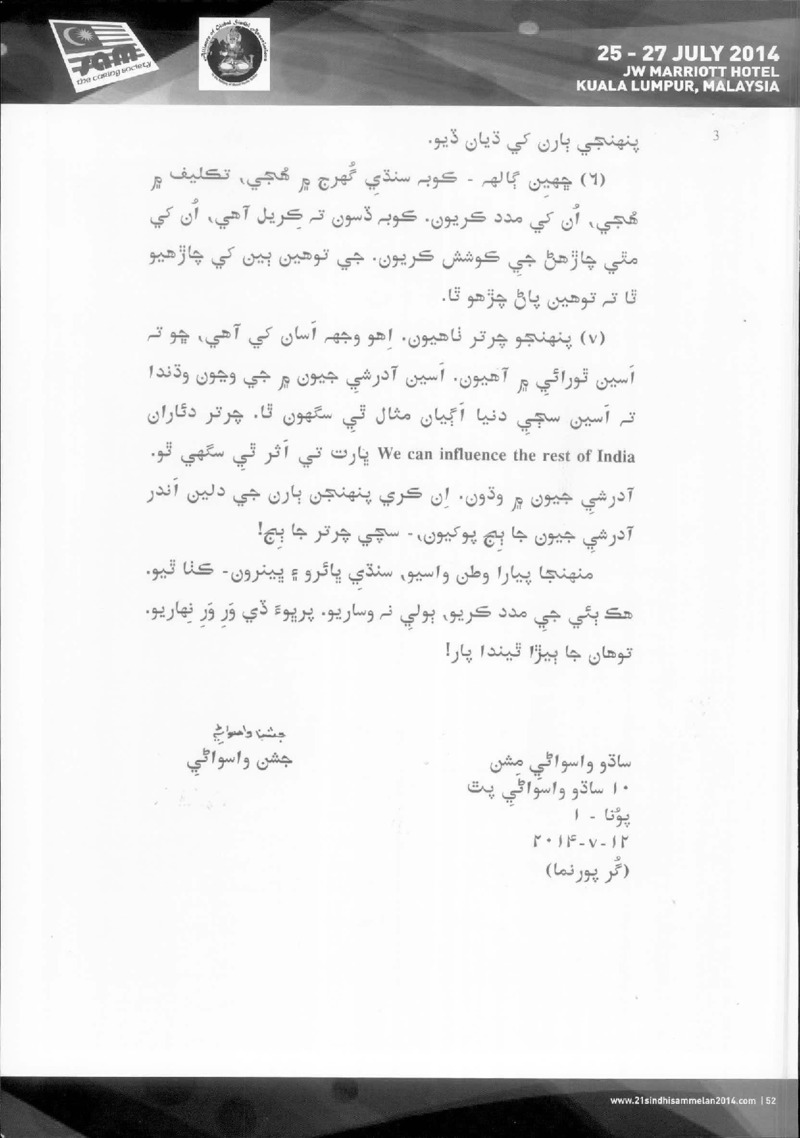 the caring society
25 - 27 JULY 2014
JW MARRIOTT HOTEL
KUALA LUMPUR, MALAYSIA
3
پنهنجي ٻارن کي ڌيان ڏيو.
(٦) ڇهين ڳالهہ - ڪوبہ سنڌي گُهرج ۾ هُجي، تڪليف ۾
هُجي، اُن کي مدد ڪريون. ڪوبہ ڏسون تہ ڪِريل آهي، اُن کي
مٿي چاڙهڻ جي ڪوشش ڪريون. جي توهين ٻين کي چاڙهيو
ٿا تہ توهين پاڻ چڙهو ٿا.
(٧) پنهنجو چرتر ٺاهيون. اِهو وجهہ اَسان کي آهي، ڇو تہ
اَسين ٿورائي ۾ آهيون. اَسين آدرشي جيون ۾ جي وڃون وڌندا
تہ اَسين سڄي دنيا اَڳيان مثال ٿي سگهون ٿا. چرتر دئاران
We can influence the rest of India ڀارت تي اَثر ٿي سگهي ٿو.
آدرشي جيون ۾ وڌون. اِن ڪري پنهنجن ٻارن جي دلين اَندر
آدرشي جيون جا ٻِڄ پوکيون، - سچي چرتر جا ٻِڄ!
منهنجا پيارا وطن واسيو، سنڌي ڀائرو ۽ ڀينرون- ڪٺا ٿيو.
هڪ ٻئي جي مدد ڪريو، ٻولي نہ وساريو. پرڀوءَ ڏي وَرِ وَرِ نِهاريو.
توهان جا ٻيڙا ٿيندا پار!
جشن واسواڻي
جشن واسواڻي
ساڌو واسواڻي مِشن
١٠ ساڌو واسواڻي پٿ
پوُنا - ١
١٢-٧-٢٠١۴
(گُر پورنما)
www.21sindhisammelan2014.com | 52